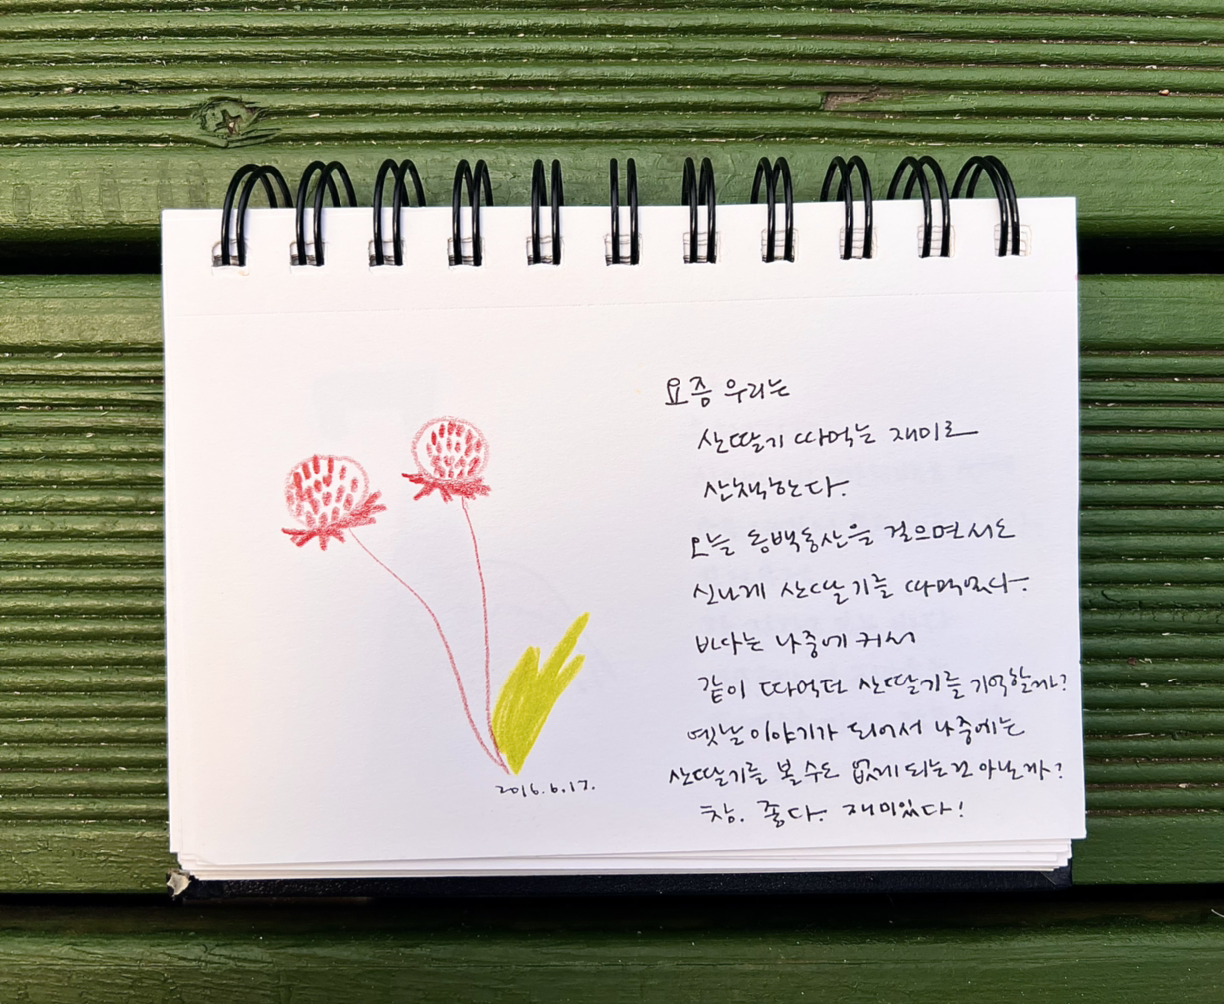 요즘 우리는
산딸기 따먹는 재미로
산책한다.
오늘 동백동산을 걸으면서도
신나게 산딸기를 따먹었다.
바다는 나중에 커서
같이 따먹던 산딸기를 기억할까?
옛날 이야기가 되어서 나중에는
산딸기를 볼 수도 없게 되는건 아닐까?
참. 좋다. 재미있다!
2016.6.17.